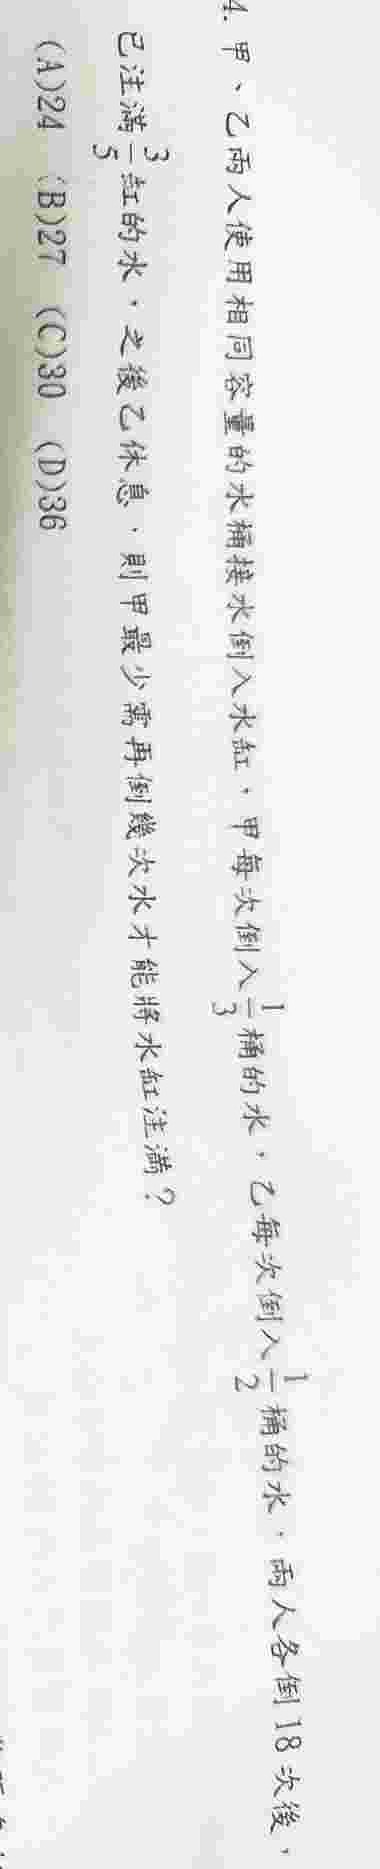 4. 甲、乙兩人使用相同容量的水桶接水倒入水缸，甲每次倒入1/3桶的水，乙每次倒入1/2桶的水，兩人各倒18次後，
已注滿3/5缸的水，之後乙休息，則甲最少需再倒幾次水才能將水缸注滿？
(A)24 (B)27 (C)30 (D)36